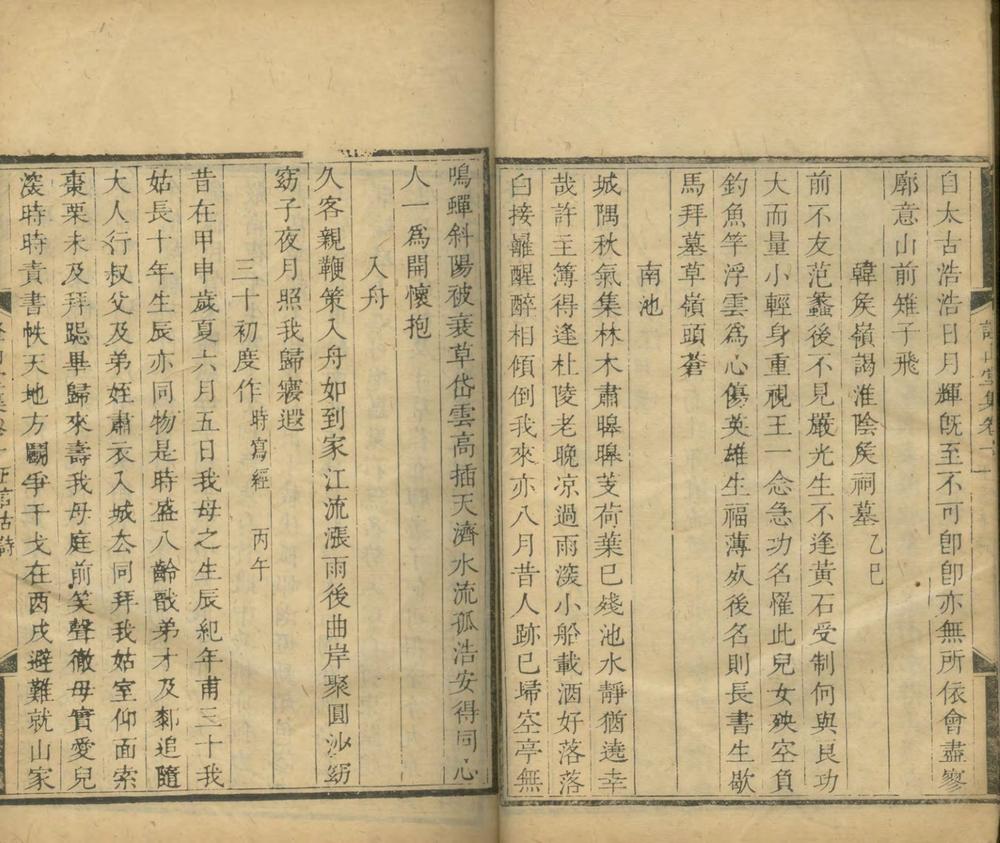 自太古浩浩日月輝旣至不可卽卽亦無所依會盡寥
廓意山前雉子飛
韓矦嶺謁淮陰矦祠墓 乙巳
前不友范蠡後不見嚴光生不逢黃石受制何與良功
大而量小輕身重視王一念急功名罹此兒女殃空負
釣魚竿浮雲爲心傷英雄生福薄㱙後名則長書生歇
馬拜墓草嶺頭蒼
南池
城隅秋氣集林木肅皞皞芰荷葉已殘池水靜猶遶幸
哉許主簿得逢杜陵老晚凉過雨滚小船載酒好落落
白接䍦醒醉相傾倒我來亦八月昔人跡已埽空亭無
鳴蟬斜陽被衰草岱雲高插天濟水流孤浩安得同心
人一爲開懷抱
入舟
久客親鞭策入舟如到家江流漲雨後曲岸聚圓沙窈
窈子夜月照我歸寢遐
三十初度作 時寫經 丙午
昔在甲申歲夏六月五日我母之生辰紀年甫三十我
姑長十年生辰亦同物是時盛八齡戲弟才及厀追隨
大人行叔父及弟姪肅衣入城厺同拜我姑室仰面索
棗栗未及拜跽畢歸來壽我母庭前笑聲徹母實愛兒
深時時責書帙天地方鬭爭干戈在酉戌避難就山家